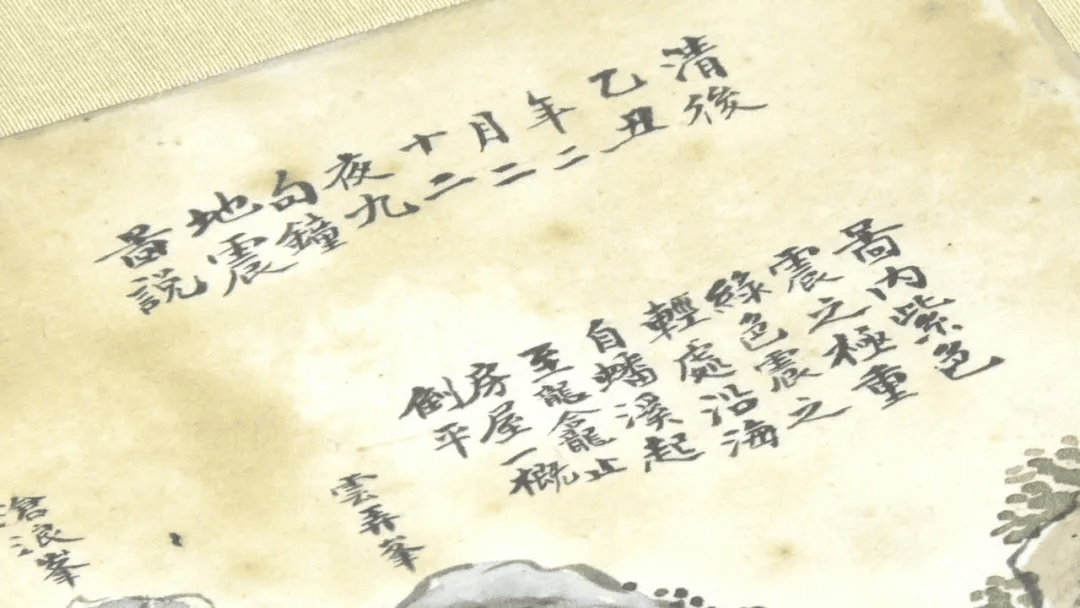 清後
乙丑
年二
月二
十二
夜九
句鐘
地震
啚說
啚内紫色
震之極重
綠色震之
輕處沿海
自蟠溪起
至龍龕止
房屋一概
倒平
雲弄峯
滄浪峯